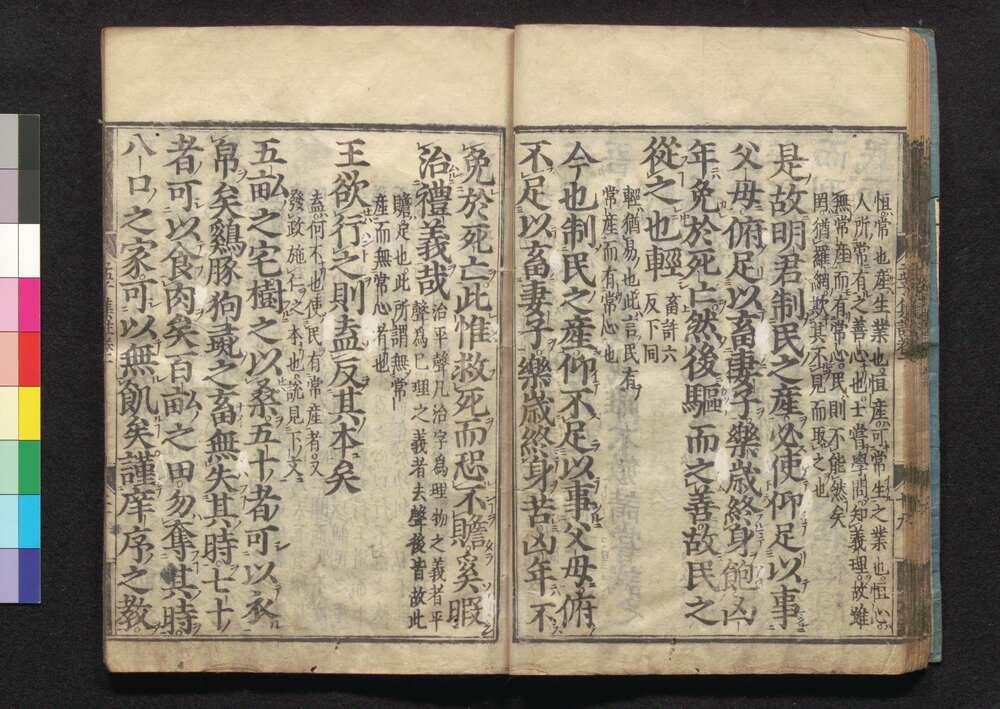 恒常也産生業也恒産可常生之業也恒心
人所常有之善心也士嘗學問知義理故雖
無常産而有常心民則不能然矣
罔猶羅網欺其不見而取之也
是故明君制民之産必使仰足以事
父母俯足以畜妻子樂歳終身飽凶
年免於死亡然後驅而之善故民之
從之也輕畜許六反下同
輕猶易也此言民有
常産而有常心也
今也制民之産仰不足以事父母俯
不足以畜妻子樂歳終身苦凶年不
免於死亡此惟救死而恐不贍奚暇
治禮義哉治平聲凡治字爲理物之義者平聲爲已理之義者去聲後皆故此
贍足也此所謂無常
産而無常心者也
王欲行之則盍反其本矣
盍何不也使民有常産者又
發政施仁之本也説見下文
五畝之宅樹之以桑五十者可以衣
帛矣鷄豚狗彘之畜無失其時七十
者可以食肉矣百畝之田勿奪其時
八口之家可以無飢矣謹庠序之教